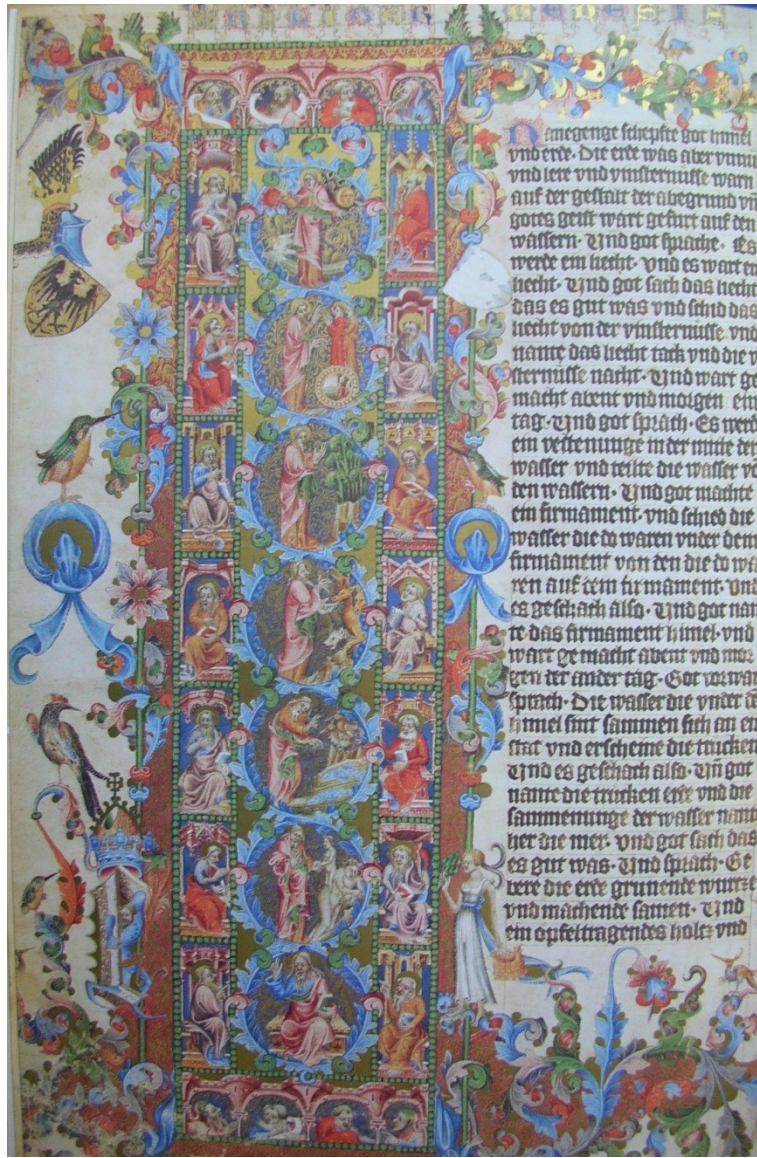 Namegenge schepfte got himel
vnd erde. Die erde was aber vnnu
vnd lere vnd vinsternusse warn
auf der gestalt der abegrund vn̄
gotes geist wart gefurt auf den
wassern. Vnd got sprache. Es
werde ein liecht. vnd es wart ein
liecht. Vnd got sach das liecht
das es gut was vnd schid das
liecht von der vinsternusse. vnd
nante das liecht tack vnd die v
sternusse nacht. Vnd wart ge
macht abent vnd morgen ein
tag. Vnd got sprach. Es werd
ein vestenunge in der mitte der
wasser vnd teilte die wasser vo
den wassern. Vnd got machte
ein firmament. vnd schied die
wasser die do waren vnder dem
firmament von den die do wa
ren auf dem firmament. vnd
es geschach also. Vnd got nan
te das firmament himel. vnd
wart gemacht abent vnd mor
gen der ander tag. Got vorwar
sprach. Die wasser die vnder dē
himel sint sammen sich an ein
stat vnd erscheine die trucken
Vnd es geschach also. Vn̄ got
nante die trucken erde vnd die
sammenunge der wasser nant
her die mer. vnd got sach das
es gut was. Vnd sprach. Ge
bere die erde grunende wurtze
vnd machende samen. Vnd
ein opfeltragendes holtz vnd